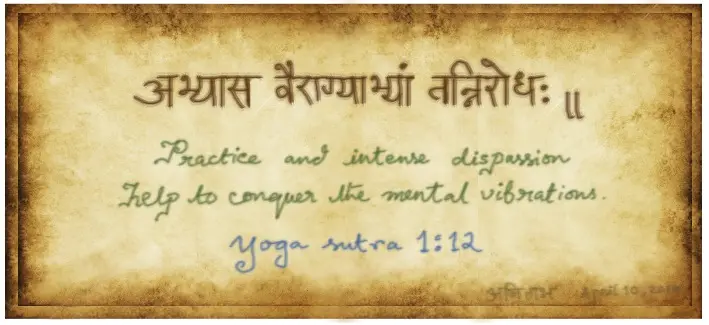 अभ्यास वैराग्याभ्यां तन्निरोधः ॥
Practice and intense dispassion
help to conquer the mental vibrations.
Yoga sutra 1:12
April 10,